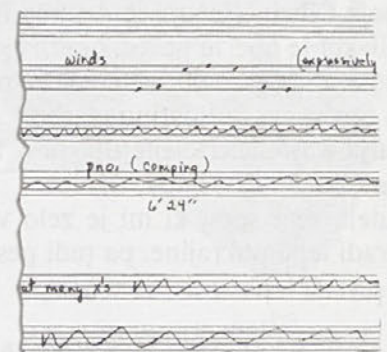 winds (expressively
pno. (comping)
6'24"
at many x's